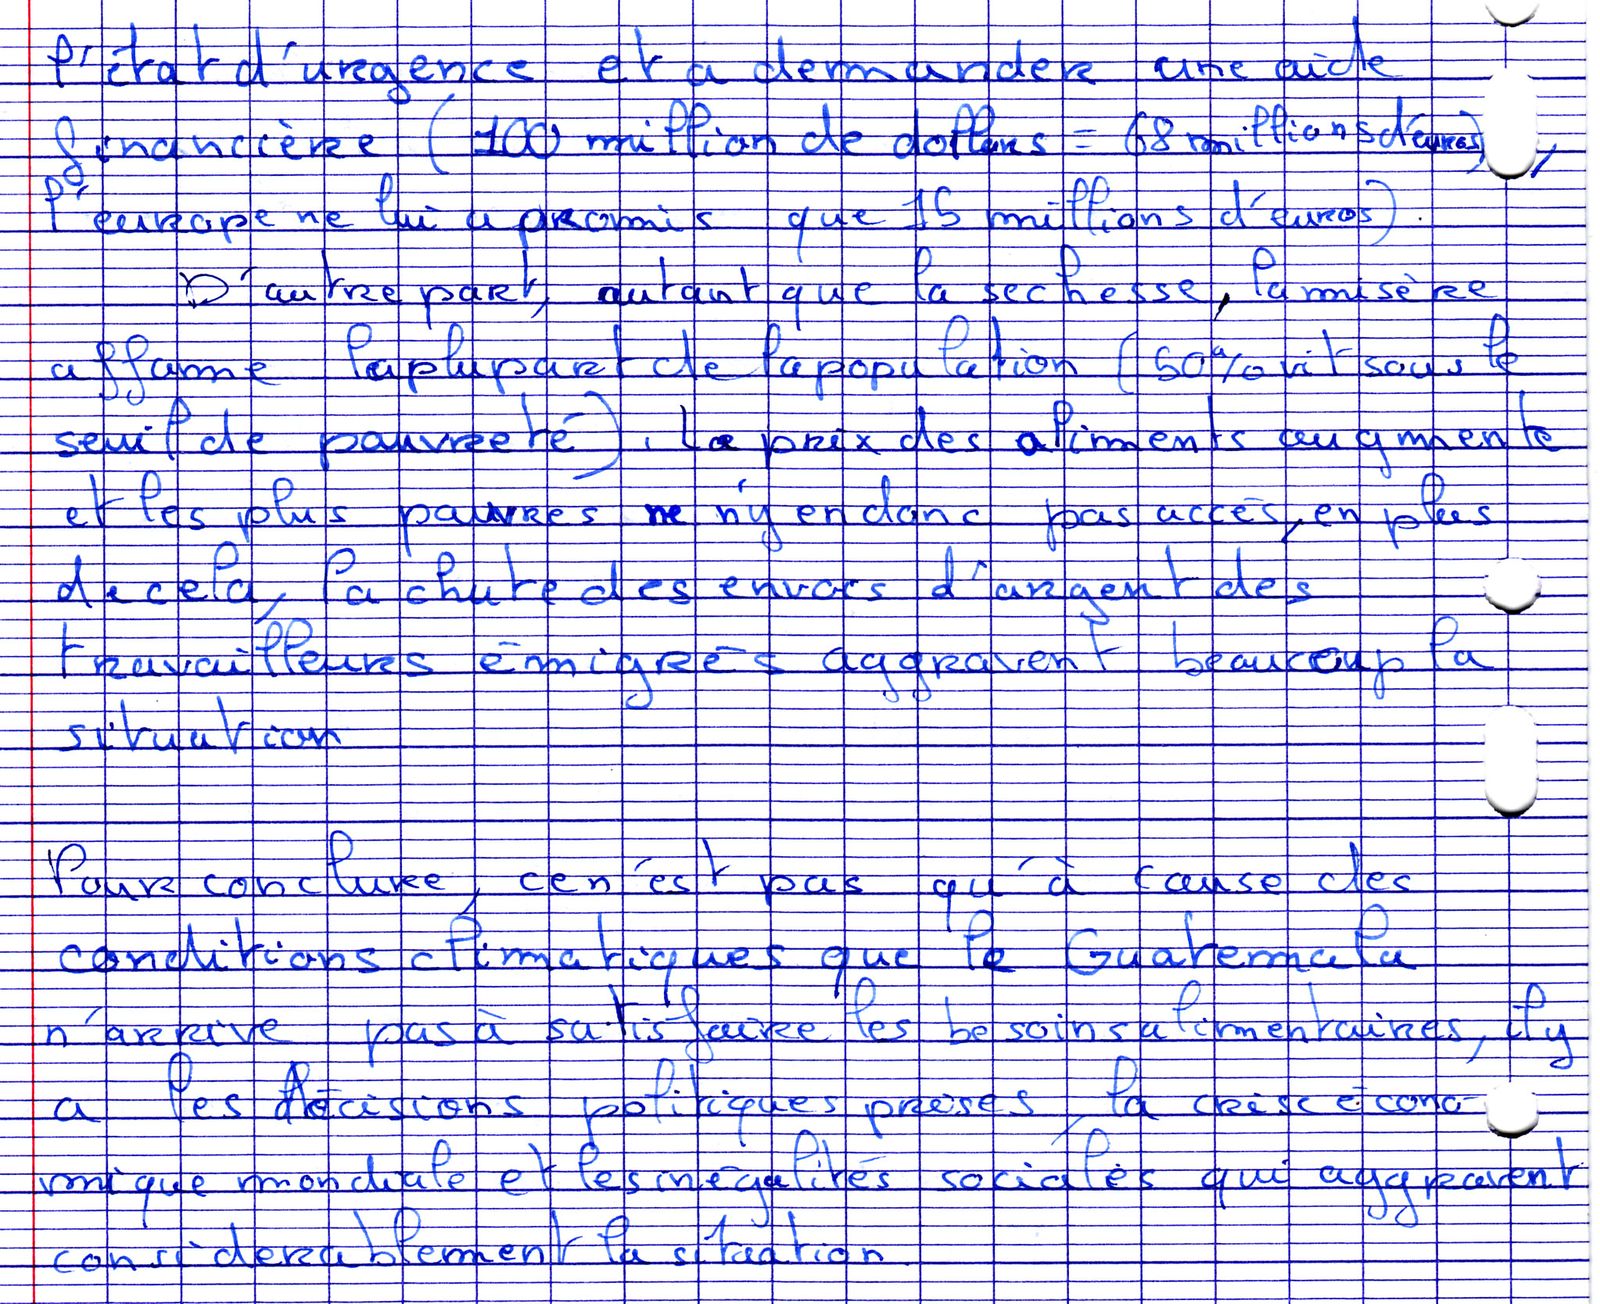 l'état d'urgence et a demander une aide
financière (100 million de dollars = 68 millions d'euros),
l'europe ne lui a promis que 15 millions d'euros).
D'autre part, autant que la sechesse, la misère
affame la plupart de la population (50% vit sous le
seuil de pauvreté). Le prix des aliments augmente
et les plus pauvres ne n'y en donc pas accès, en plus
de cela, la chute des envois d'argent des
travailleurs émigrés aggravent beaucoup la
situation
Pour conclure, ce n'est pas qu'à cause des
conditions climatiques que le Guatemala
n'arrive pas à satisfaire les besoins alimentaires, il y
a les décisions politiques prises, la crise écono-
mique mondiale et les inégalités sociales qui aggravent
considerablement la situation